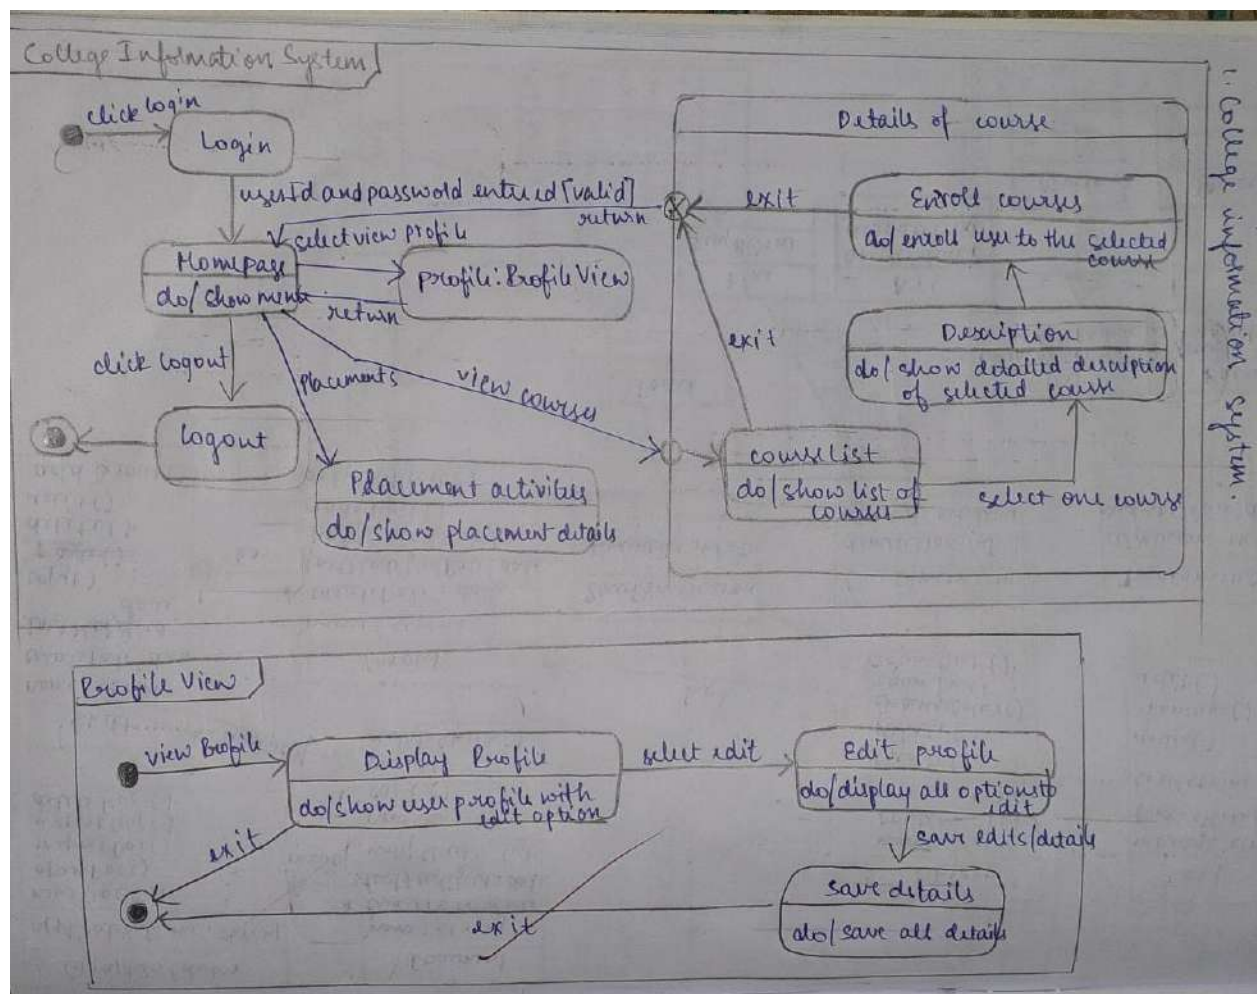 College Information System
1. College information system.
click login
Login
userId and password entered [valid]
return
select view profile
Homepage
do/ show menu
profile: Profile View
return
click logout
placements
view courses
logout
Placement activities
do/show placement details
Details of course
exit
Enroll courses
do/ enroll user to the selected
course
exit
Description
do/ show detailed description
of selected course
course list
do/ show list of
courses
select one course
Profile View
view Profile
Display Profile
do/show user profile with
edit option
select edit
Edit profile
do/display all options to
edit
save edits/details
exit
save details
do/ save all details
exit